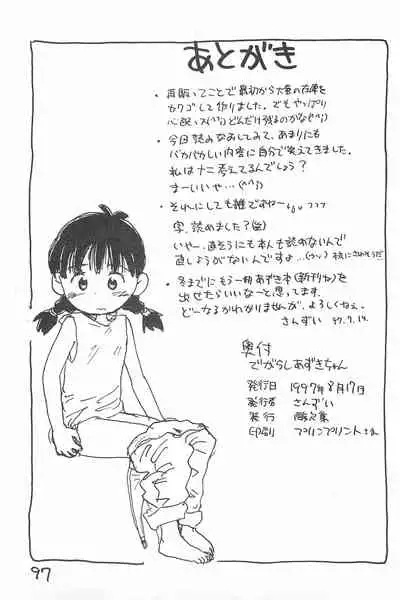 あとがき
・再販ってことで最初から大量の在庫を
カクゴして作りました。でもやっぱり
心配っス(^^;)どんだけ残るのかな(^^;)
・今回読みなおしてみて、あまりにも
バカバカしい内容に自分で笑えてきました。
私はナニ考えてるんでしょう?
まーいいや…(^^;)
・それにしても雑ですねー
字、読めました?(笑)
いやー、直そうにも本人も読めないんで
直しようがないんですよ…
・冬までにもう一冊あずき本(新刊ね)を
出せたらいいなーと思ってます。
どーなるかわかりませんが、よろしくねぇ。
さんずい 97.7.19.
奥付
でがらしあずきちゃん
発行日 1997年8月17日
発行者 さんずい
発行
印刷 プリンプリントさん
97